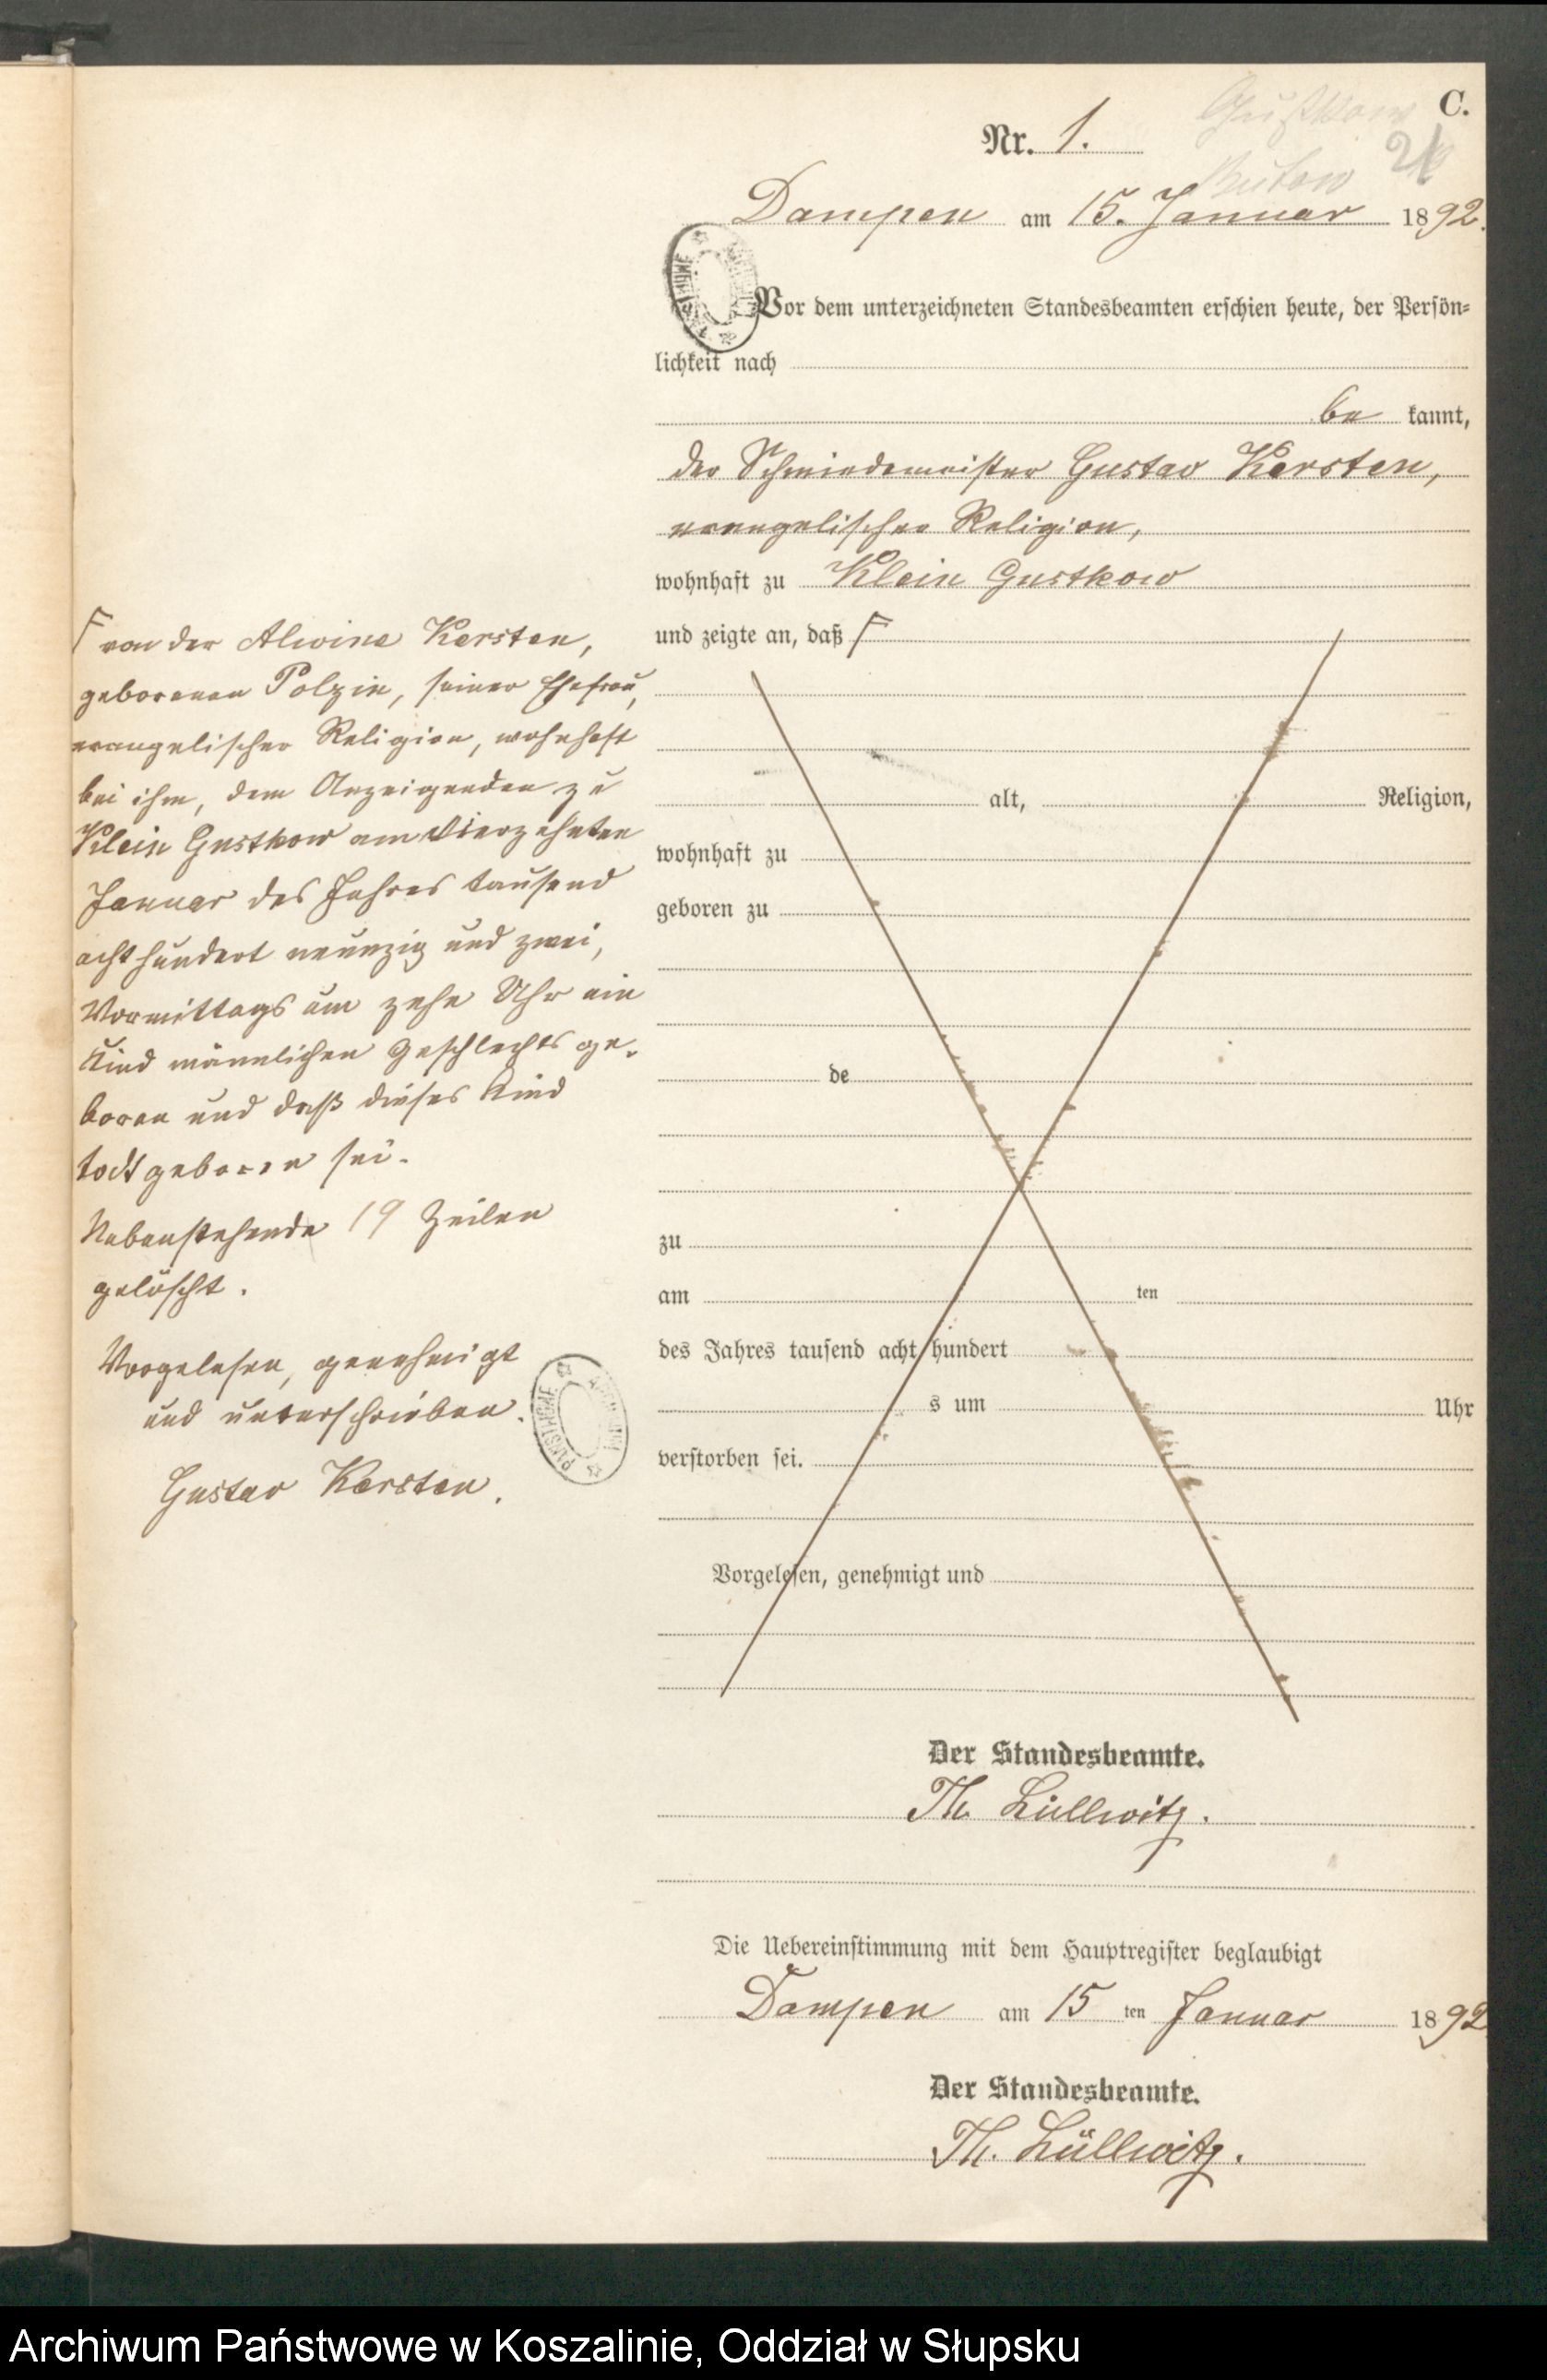 C.
Nr. 1.
Gustkow
Bütow
Dampen am 15. Januar 1892.
Vor dem unterzeichneten Standesbeamten erschien heute, der Persön-
lichkeit nach
be kannt,
der Schmiedemeister Gustav Kersten,
evangelischer Religion,
wohnhaft zu Klein Gustkow
und zeigte an, daß Γ
alt, Religion,
wohnhaft zu
geboren zu
de
zu
am ten
des Jahres tausend acht hundert
s um Uhr
verstorben sei.
Vorgelesen, genehmigt und
Γ von der Alwine Kersten,
geborenen Polzin, seiner Ehefrau,
evangelischer Religion, wohnhaft
bei ihm, dem Anzeigenden zu
Klein Gustkow am vierzehnten
Januar des Jahres tausend
acht hundert neunzig und zwei,
Vormittags um zehn Uhr ein
Kind männlichen Geschlechts ge-
boren und daß dieses Kind
todt geboren sei.
Nebenstehende 19 Zeilen
gelöscht.
Vorgelesen, genehmigt
und unterschrieben.
Gustav Kersten.
Der Standesbeamte.
Th. Lüllwitz.
Die Uebereinstimmung mit dem Hauptregister beglaubigt
Dampen am 15 ten Januar 1892
Der Standesbeamte.
Th. Lüllwitz.
Archiwum Państwowe w Koszalinie, Oddział w Słupsku